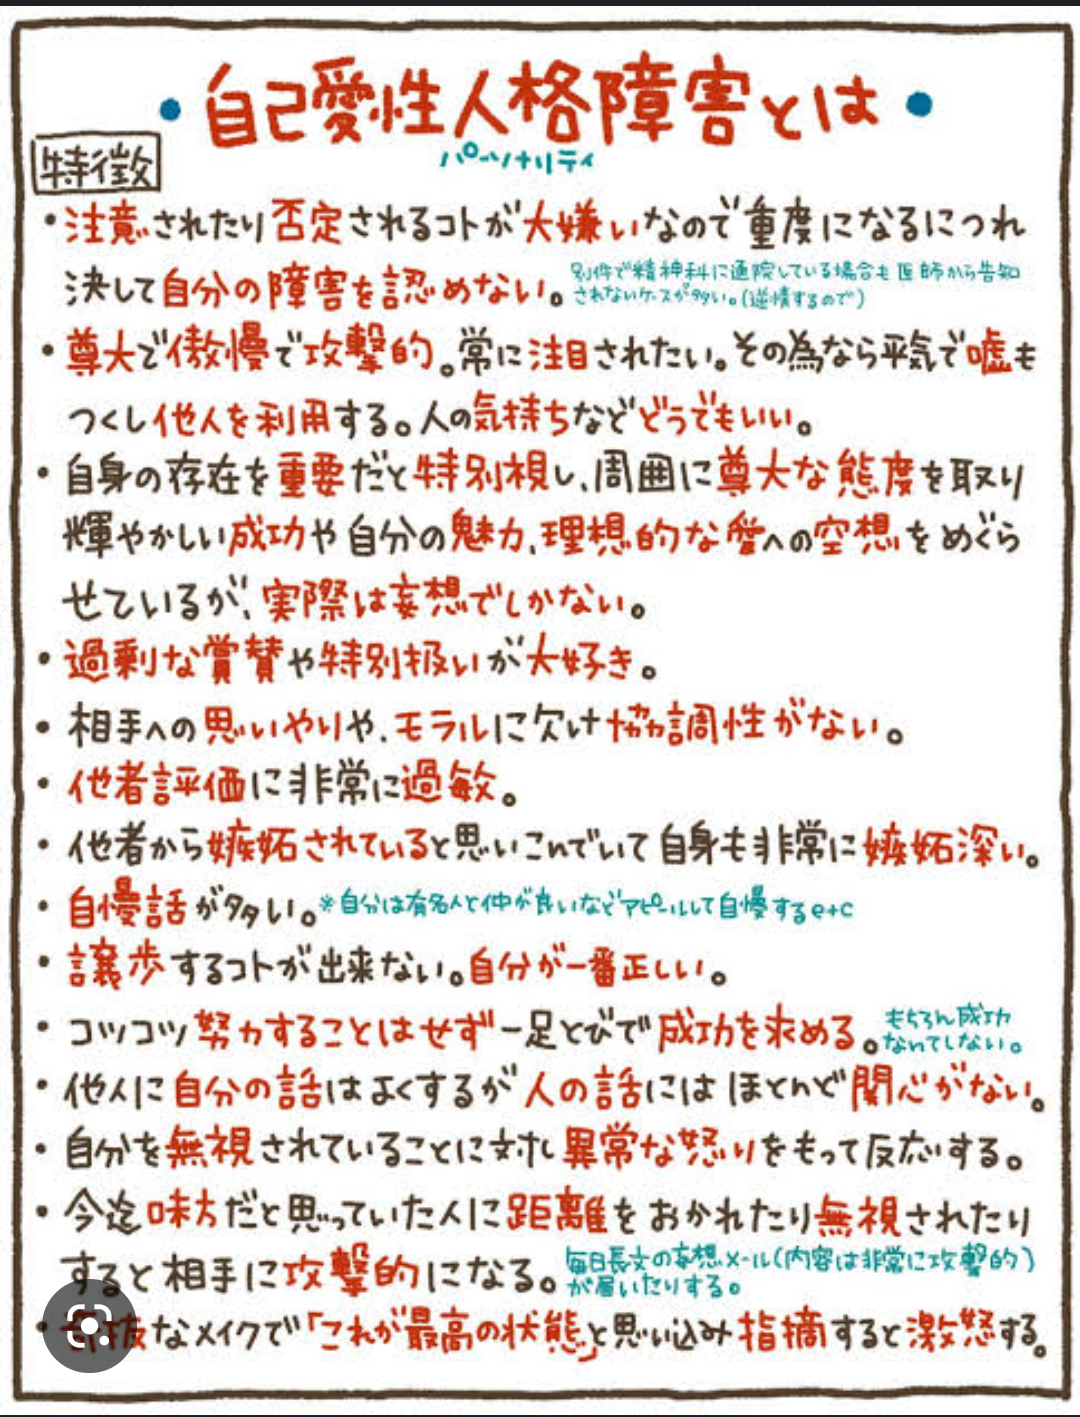 ・自己愛性人格障害とは・
パーソナリティ
特徴
・注意されたり否定されるコトが大嫌いなので重度になるにつれ
決して自分の障害を認めない。
別件で精神科に通院している場合も医師から告知
されないケースが多い。(逆情するので)
・尊大で傲慢で攻撃的。常に注目されたい。その為なら平気で嘘も
つくし他人を利用する。人の気持ちなどどうでもいい。
・自身の存在を重要だと特別視し、周囲に尊大な態度を取り
輝やかしい成功や自分の魅力、理想的な愛への空想をめぐら
せているが、実際は妄想でしかない。
・過剰な賞賛や特別扱いが大好き。
・相手への思いやりや、モラルに欠け協調性がない。
・他者評価に非常に過敏。
・他者から嫉妬されていると思いこんでいて自身も非常に嫉妬深い。
・自慢話が多い。※自分は有名人と仲が良いなどアピールして自慢するetc
・譲歩するコトが出来ない。自分が一番正しい。
・コツコツ努力することはせず一足とびで成功を求める。
もちろん成功
なんてしない。
・他人に自分の話はよくするが人の話にはほとんど関心がない。
・自分を無視されていることに対し異常な怒りをもって反応する。
・今迄味方だと思っていた人に距離をおかれたり無視されたり
すると相手に攻撃的になる。
毎日長文の妄想メール(内容は非常に攻撃的)
が届いたりする。
・なメイクで「これが最高の状態」と思い込み指摘すると激怒する。